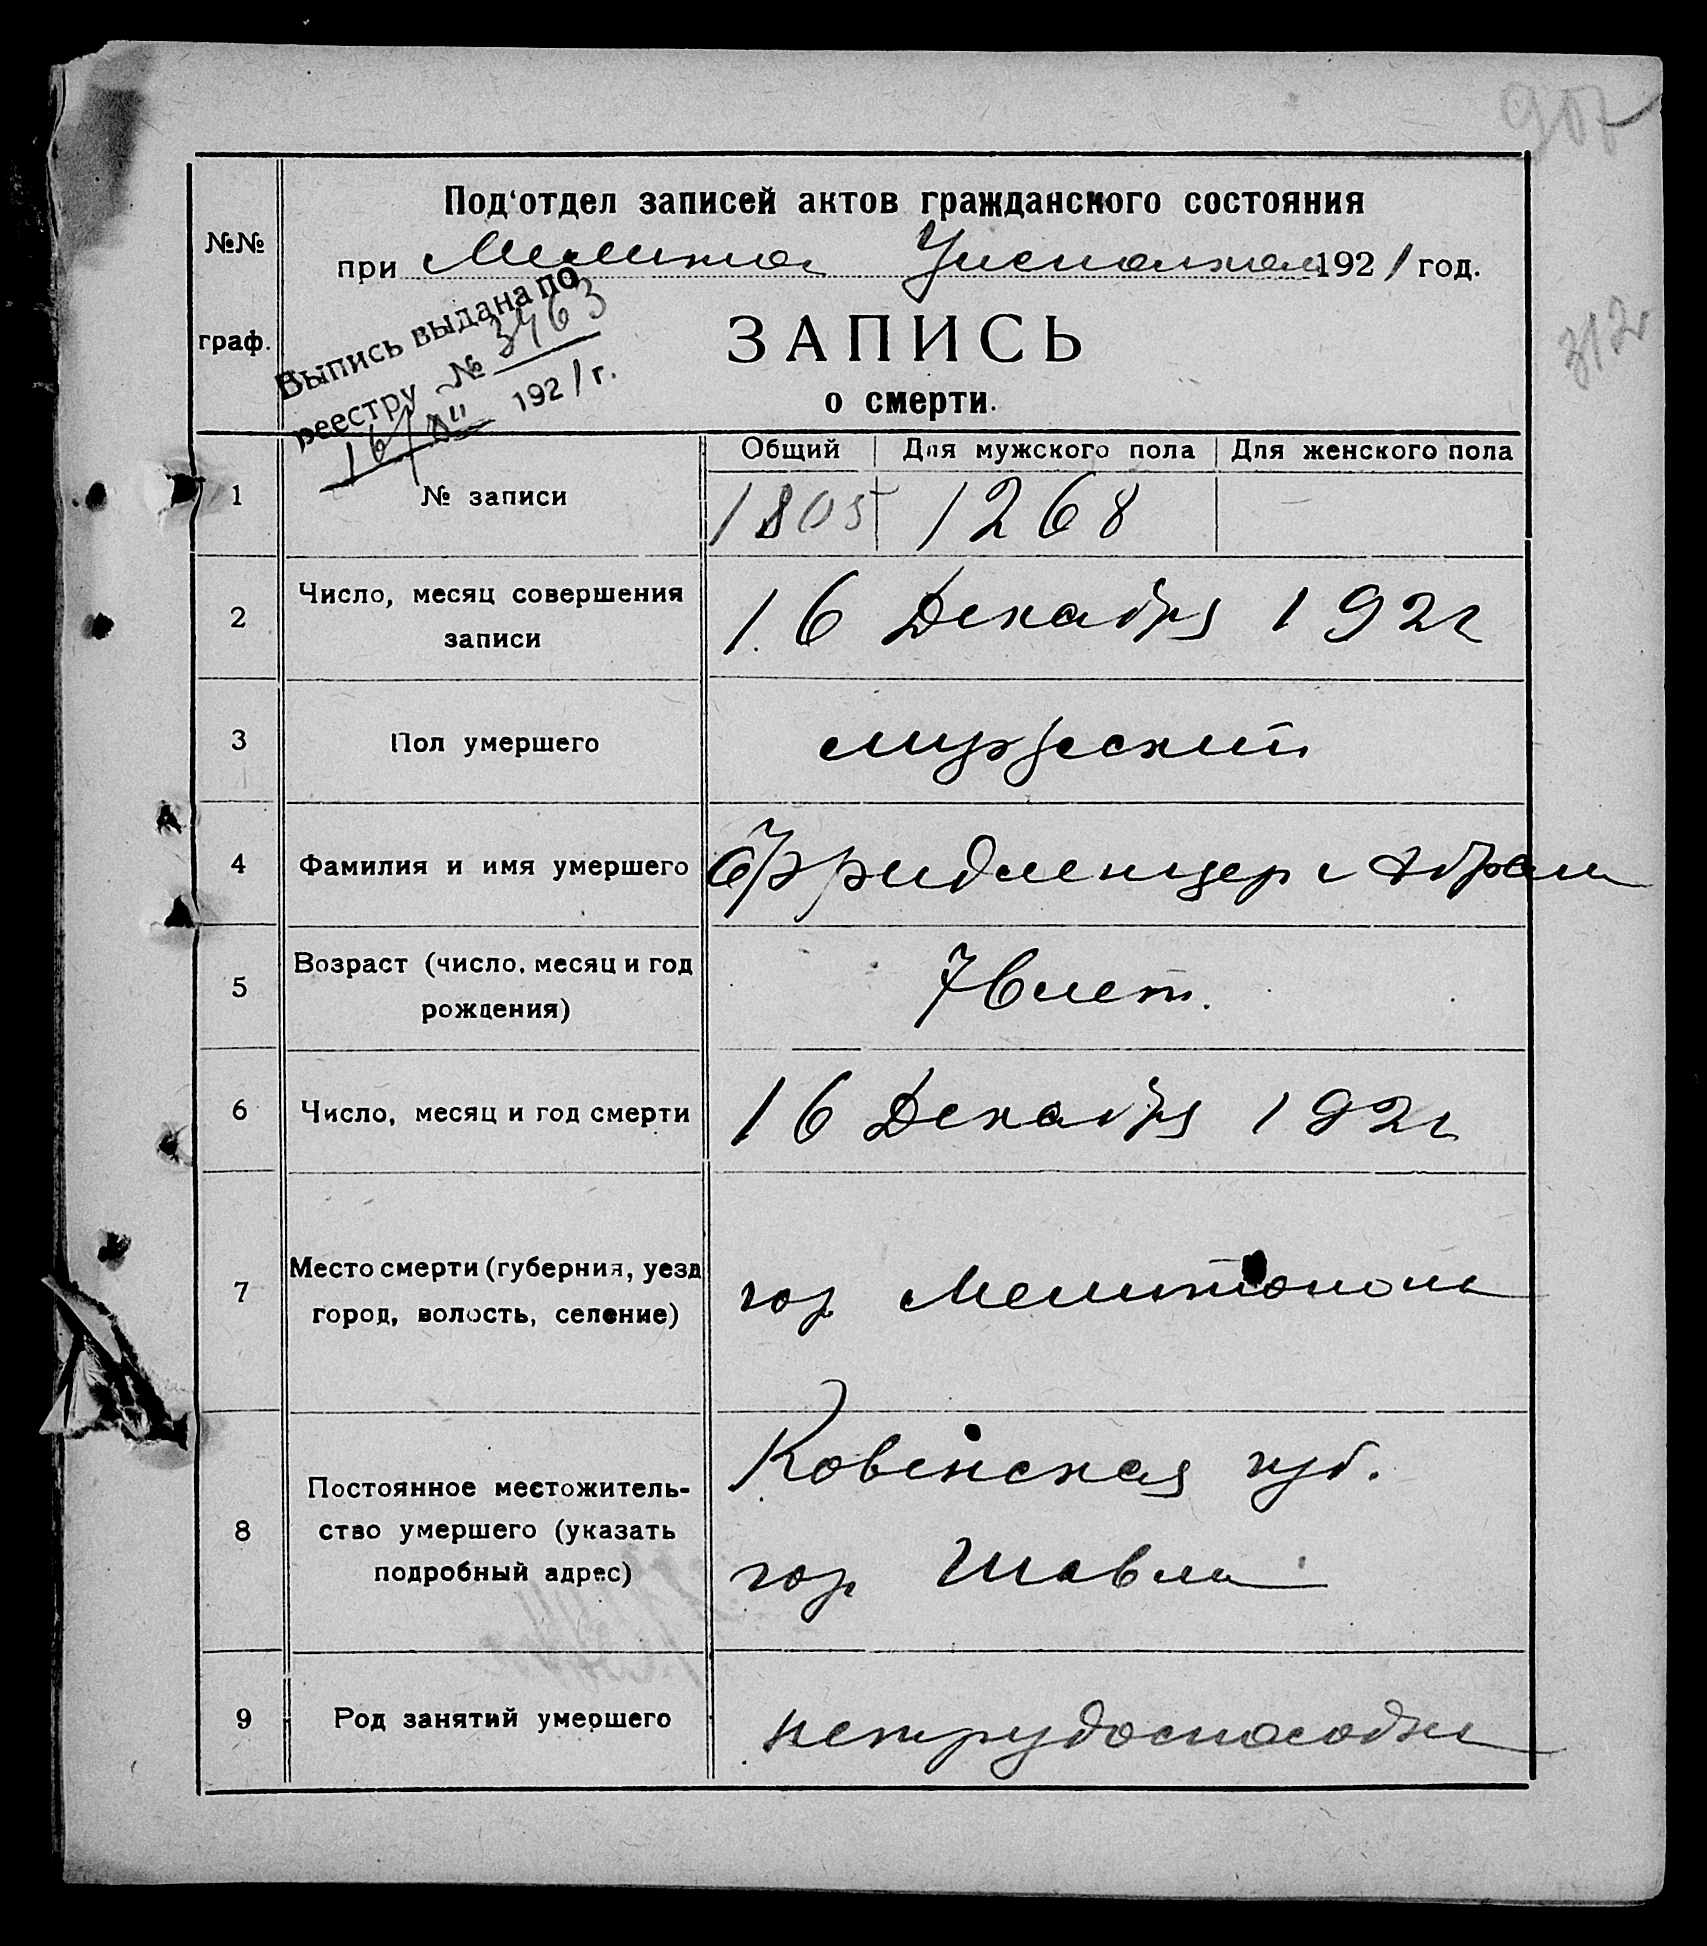 907
Под'отдел записей актов гражданского состояния
при Мелитоп Уисполком 1921 год.
312
Выпись выдана по
реестру № 3463
16/XII 1921 г.
ЗАПИСЬ
о смерти.
№№
граф.
Общий Для мужского пола Для женского пола
1 № записи 1805 1268 —
2 Число, месяц совершения
записи
16 Декабря 1921
3 Пол умершего мужеский
4 Фамилия и имя умершего Фридлендер Абрам
5 Возраст (число, месяц и год
рождения)
76 лет.
6 Число, месяц и год смерти 16 Декабря 1921
7 Место смерти (губерния, уезд
город, волость, селение)
гор Мелитополь
8 Постоянное местожитель-
ство умершего (указать
подробный адрес)
Ковенская губ.
гор Шавли
9 Род занятий умершего нетрудоспособн